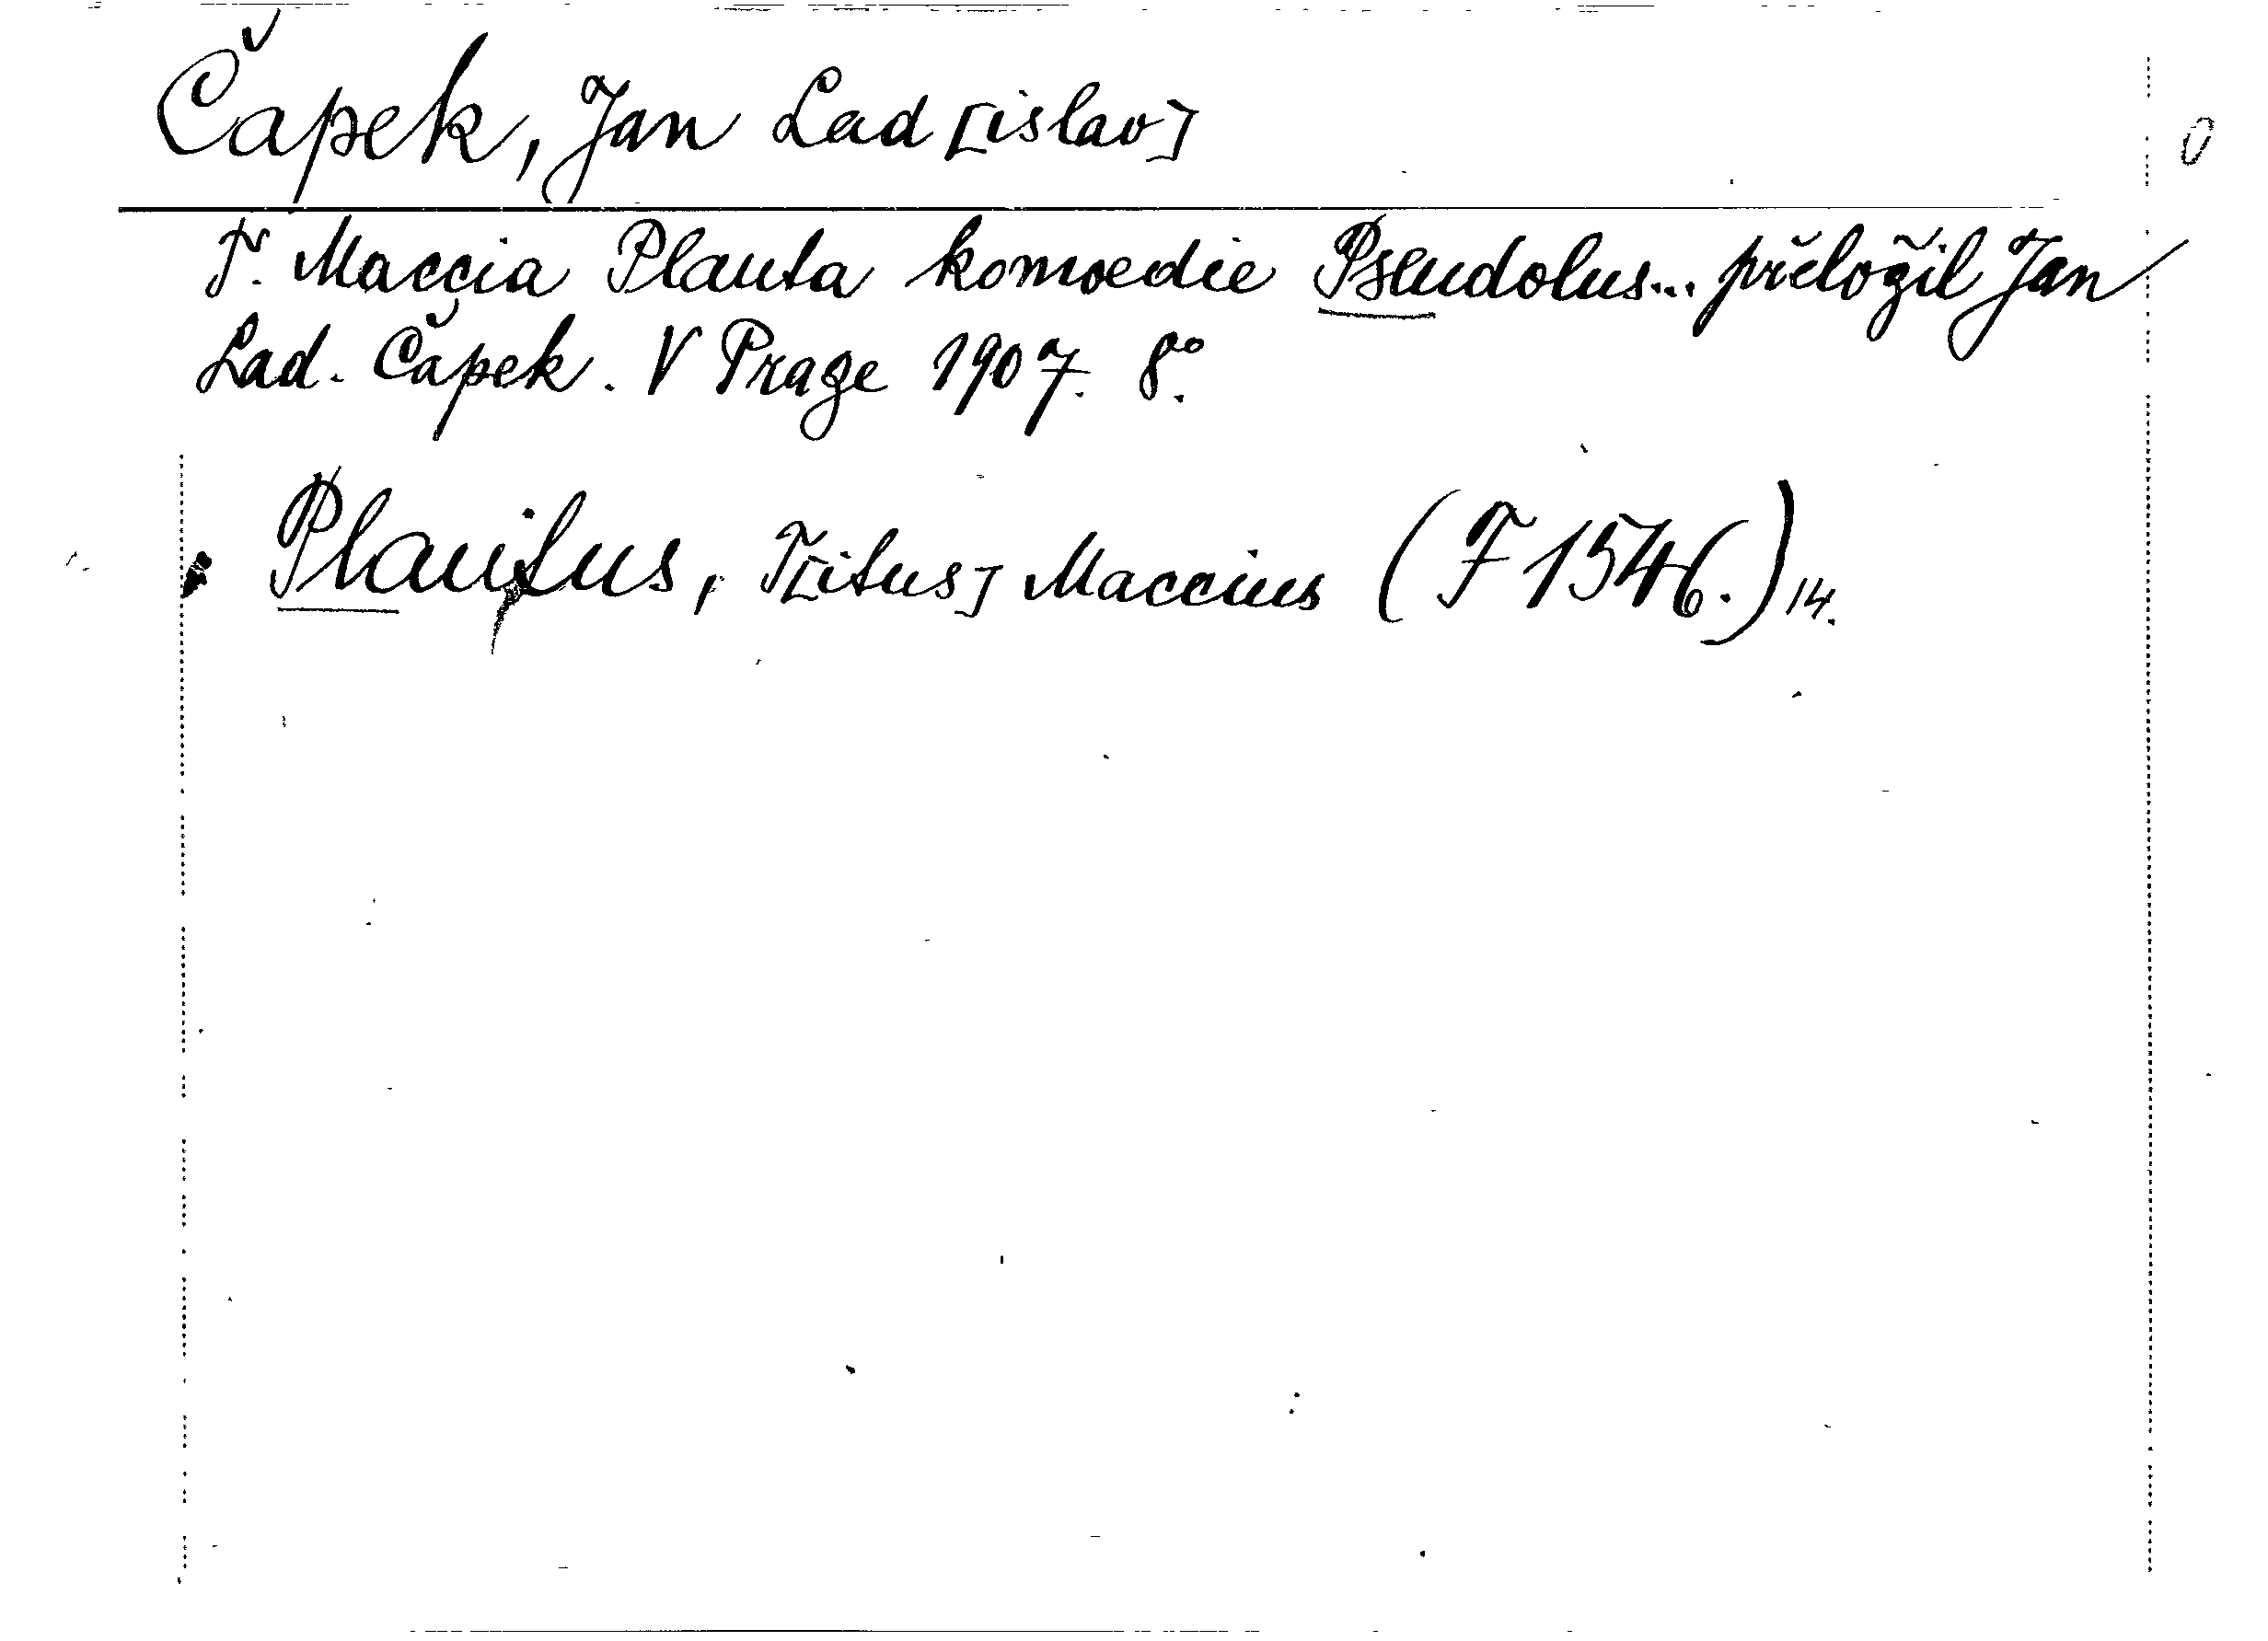 Čapek, Jan Lad[islav]
T. Maccia Plauta komoedie Pseudolus... přeložil Jan
Lad. Čapek. V Praze 1907. 8°.
Plautus, T[itus] Maccius (F 1546.) 14.